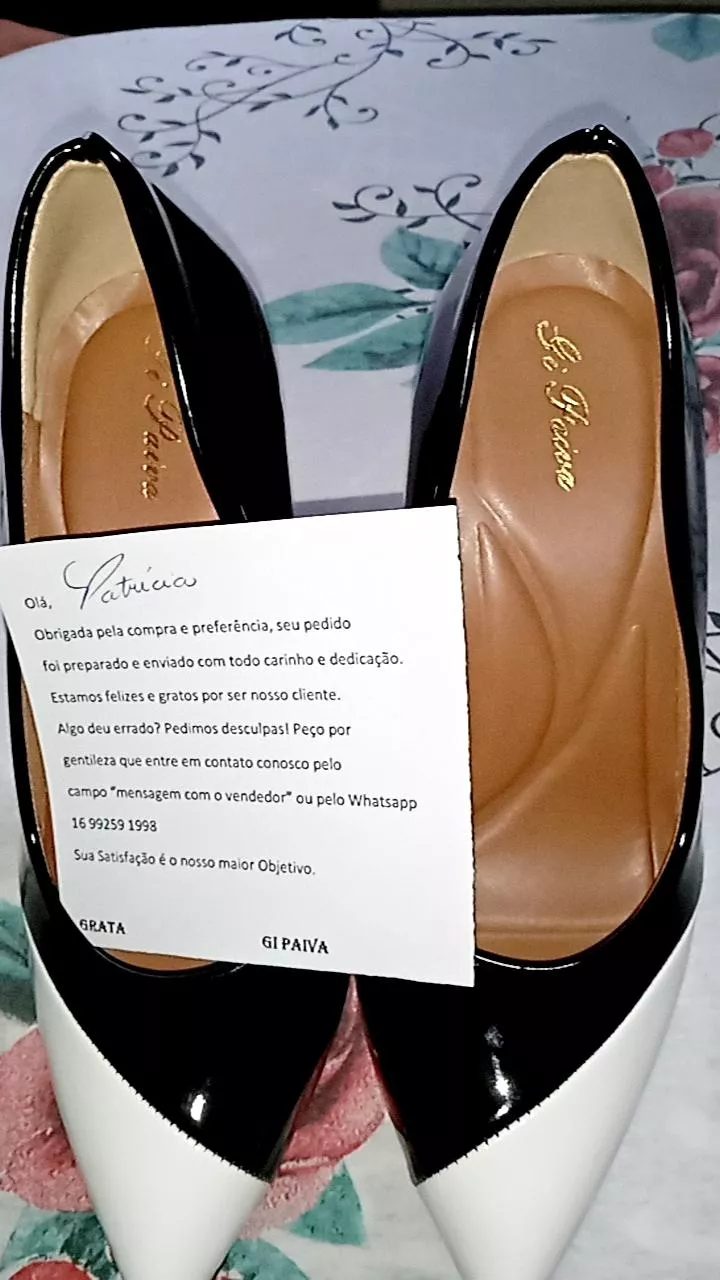 Gi Paiva
Gi Paiva
Olá, Patrícia
Obrigada pela compra e preferência, seu pedido
foi preparado e enviado com todo carinho e dedicação.
Estamos felizes e gratos por ser nosso cliente.
Algo deu errado? Pedimos desculpas! Peço por
gentileza que entre em contato conosco pelo
campo "mensagem com o vendedor" ou pelo Whatsapp
16 99259 1998
Sua Satisfação é o nosso maior Objetivo.
GRATA GI PAIVA